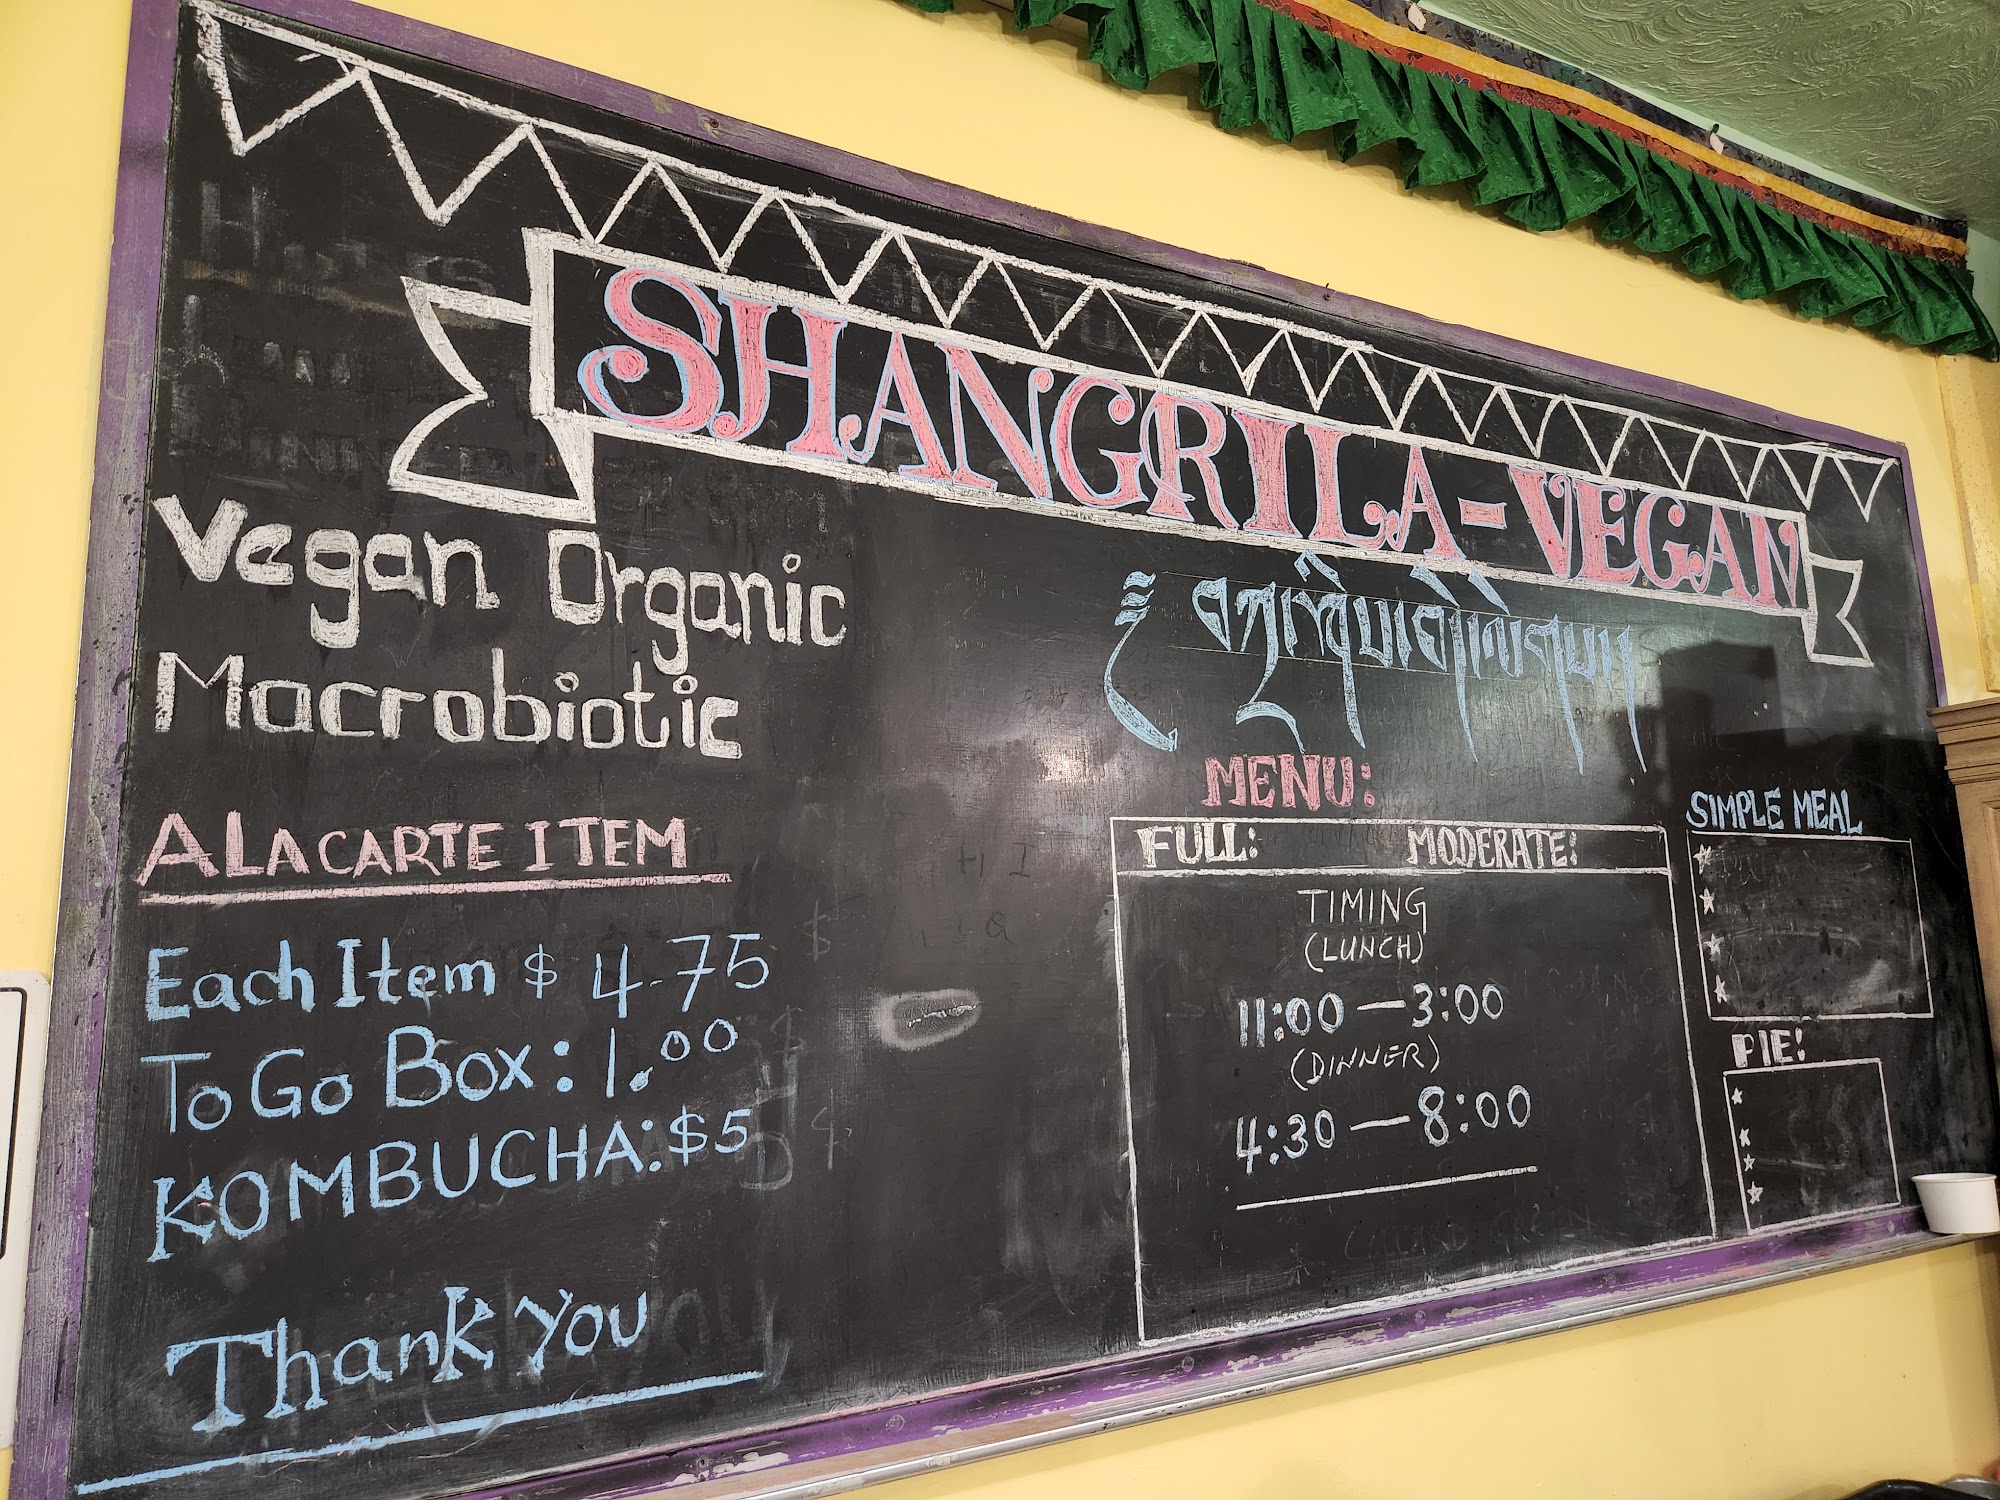 SHANGRILA-VEGAN
Vegan Organic
Macrobiotic
A LA CARTE ITEM
Each Item $ 4.75
To Go Box: 1.00
KOMBUCHA: $5
Thank you
MENU:
FULL: MODERATE:
TIMING
(LUNCH)
11:00 — 3:00
(DINNER)
4:30 — 8:00
SIMPLE MEAL
PIE: